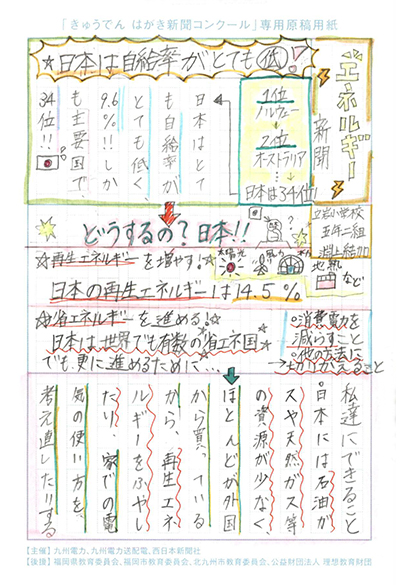 「きゅうでん はがき新聞コンクール」専用原稿用紙
エネルギー
新聞
☆日本は自給率がとても低い!
1位
ノルウェー
2位
オーストラリア
日本は34位!
日本はとて
も自給率が
とても低く、
9.6%!!しか
も主要国で、
34位!!
立岩小学校
五年二組
渕上結加
どうするの?日本!!
?
太陽光
風力
地熱
など
☆再生エネルギーを増やす!☆
日本の再生エネルギーは14.5%
☆省エネルギーを進める!
日本は世界でも有数の省エネ国
でも、更に進めるために…
○消費電力を
減らすこと
○他の方法に
きりかえること
私達にできること
○日本には石油が
スや天然ガス等
の資源が少なく
ほとんどが外国
から買っている
から、再生エネ
ルギーをふやし
たり、家での電
気の使い方を、
考え直したりする
【主催】九州電力、九州電力送配電、西日本新聞社
【後援】福岡県教育委員会、福岡市教育委員会、北九州市教育委員会、公益財団法人 理想教育財団